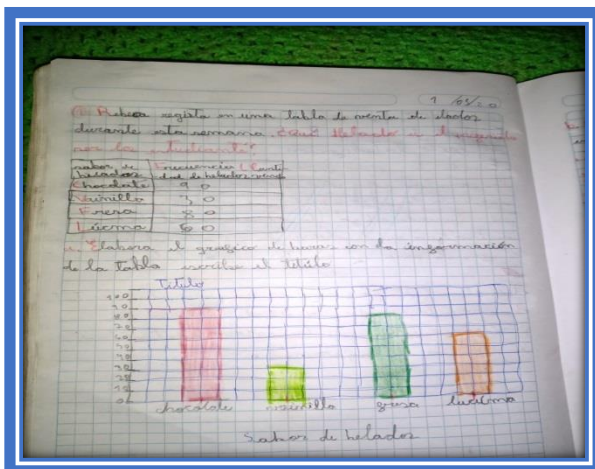 1 /05/20
Rebeca regista en una tabla la venta de elados
durante esta semana.
por los
sabor de Frecuencia (Canti-
helados dad de helados
Chocolate 90
Vainilla 30
Fresa 80
Lúcma 60
Elabora el grafico de baras con la información
de la tabla escribe el título
Título
100
90
80
70
60
50
40
30
20
10
0
chocolate vainilla fresa
Sabor de helados